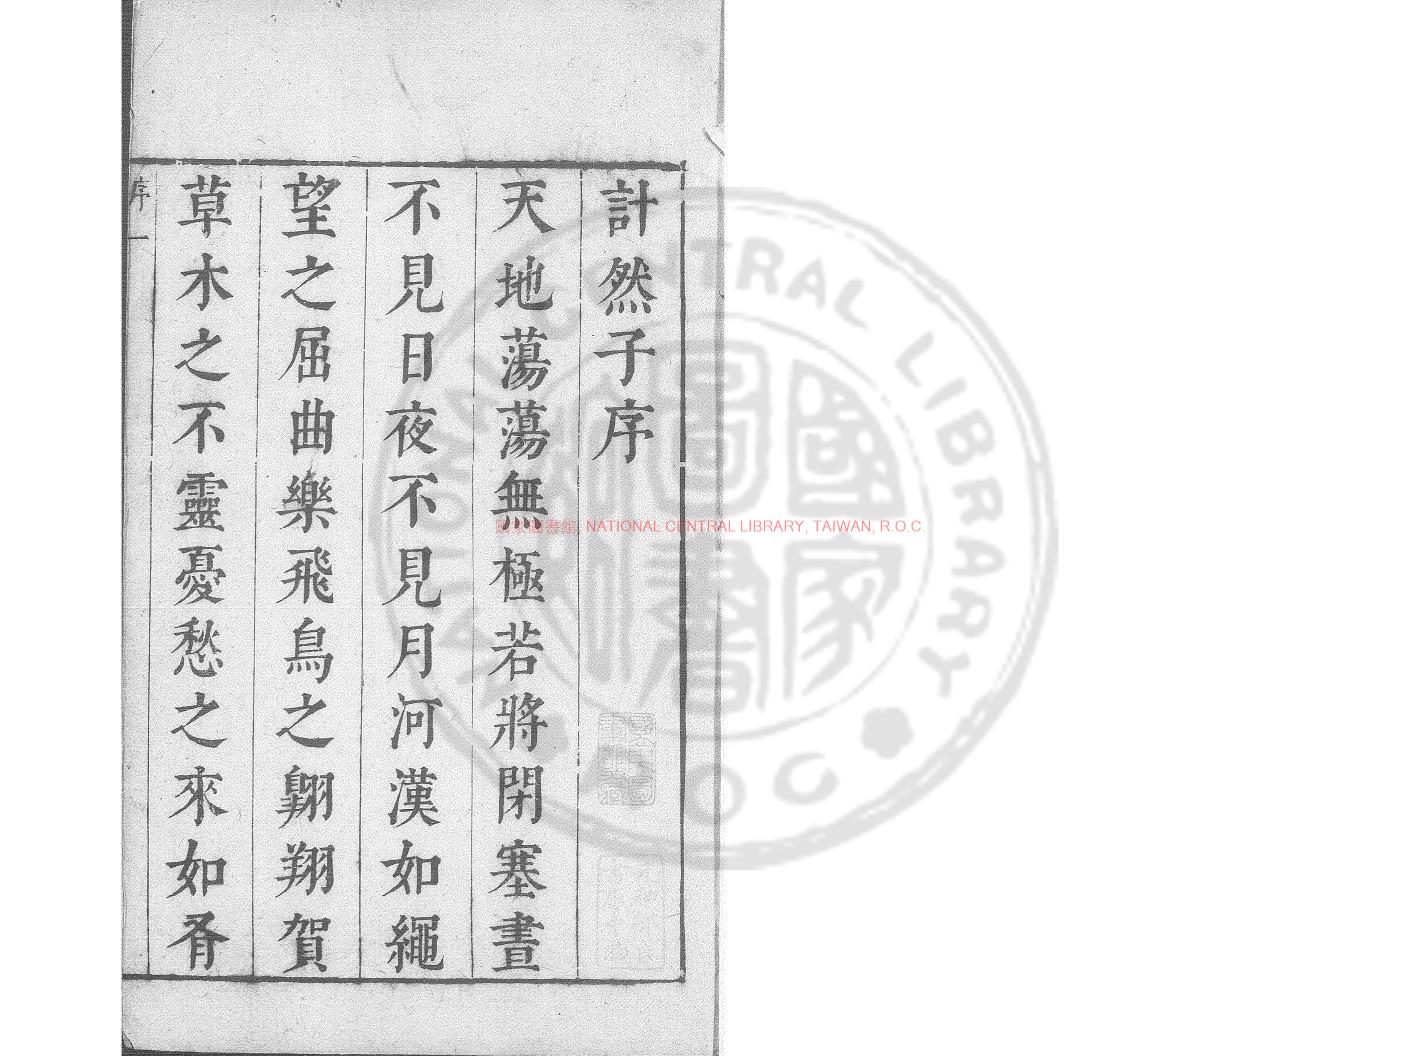 計然子序
天地蕩蕩無極若將閉塞晝
不見日夜不見月河漢如繩
望之屈曲樂飛鳥之翺翔賀
草木之不靈憂愁之來如肴
序 一
國家圖書館, NATIONAL CENTRAL LIBRARY, TAIWAN, R.O.C.
NATIONAL CENTRAL LIBRARY
R.O.C
國家圖書館